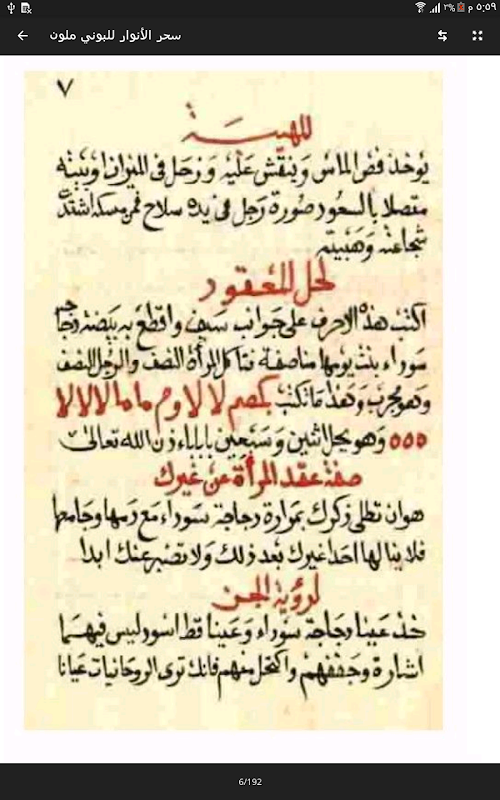 ٥:٥٩ م
٢%
سحر الأنوار للبوني ملون
٧
للهيبة
يوخذ فص الماس وينقش عليه وزحل في الميزان اوبيته
متصلا بالسعود صورة رجل في يده سلاح فمن مسكه اشتدت
شجاعته وهيبته
لحل المعقود
اكتب هذه الاحرف على جوانب سيف واقطع به بيضة دجاجه
سوداء بنت يومها مناصفة فتاكل المرأة النصف والرجل النصف
وهو مجرب وهذا ما تكتب لا لا وم ما ما لا لا لا
٥٥٥ وهو يحل اثنين وسبعين بابا باذن الله تعالى
صفة عقد المرأة عن غيرك
هوان تطلى ذكرك بمرارة دجاجة سوداء مع دمها وجامعها
فلا ينالها احدا غيرك بعد ذلك ولا تصبر عنك ابدا
لرؤية الجن
خذ عينا دجاجة سوداء وعينا قط اسود ليس فيهما
اشارة وجففهم واكتحل منهم فانك ترى الروحانيات عيانا
6/192